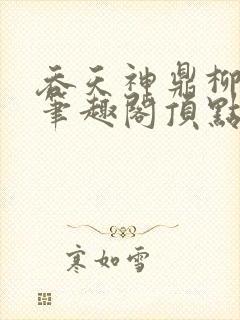 吞天神鼎柳
筆趣閣頂點
寒如雪